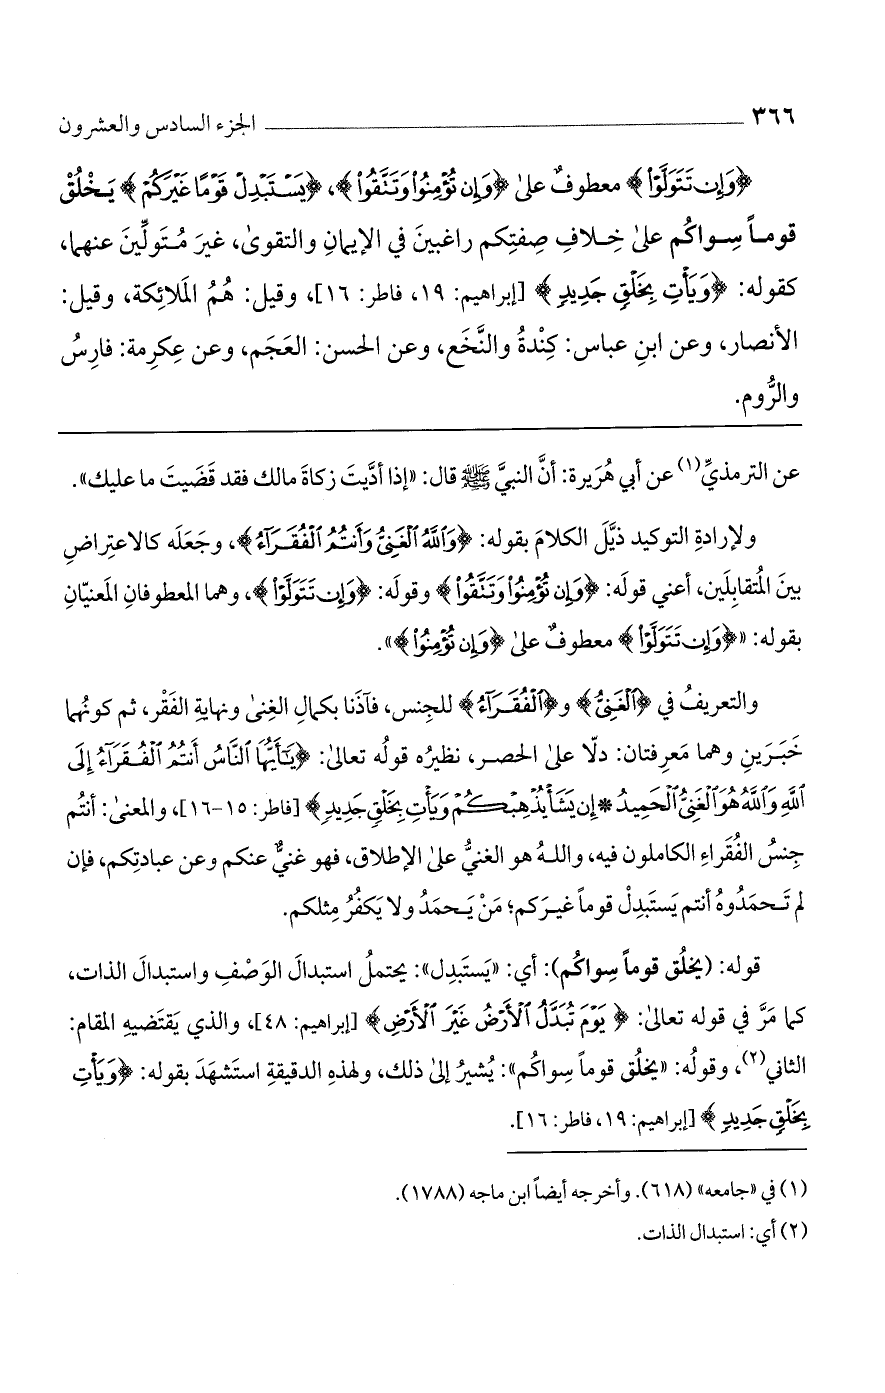 ٣٦٦ ـــــ الجزء السادس والعشرون
﴿وَإِن تَتَوَلَّوْا۟﴾ معطوفٌ علىٰ ﴿وَإِن تُؤْمِنُوا۟ وَتَتَّقُوا۟﴾، ﴿يَسْتَبْدِلْ قَوْمًا غَيْرَكُمْ﴾ يَخْلُقْ
قوماً سِواكُم علىٰ خِلافِ صِفتِكم راغبينَ في الإيمانِ والتقوىٰ، غيرَ مُتَولِّينَ عنهما،
كقوله: ﴿وَيَأْتِ بِخَلْقٍ جَدِيدٍ﴾ [إبراهيم: ١٩، فاطر: ١٦]، وقيل: هُمُ المَلائِكة، وقيل:
الأنصار، وعن ابنِ عباس: كِنْدةُ والنَّخَع، وعن الحسن: العَجَم، وعن عِكرِمة: فارِسُ
والرُّوم.
عن الترمذيِّ(١) عن أبي هُرَيرة: أنَّ النبيَّ ﷺ قال: «إذا أدَّيتَ زكاةَ مالك فقد قَضَيتَ ما عليك».
ولإرادةِ التوكيد ذيَّلَ الكلامَ بقوله: ﴿وَٱللَّهُ ٱلْغَنِىُّ وَأَنتُمُ ٱلْفُقَرَآءُ﴾، وجعَلَه كالاعتِراضِ
بينَ المُتقابِلَين، أعني قولَه: ﴿وَإِن تُؤْمِنُوا۟ وَتَتَّقُوا۟﴾ وقولَه: ﴿وَإِن تَتَوَلَّوْا۟﴾، وهما المعطوفانِ المَعنيّانِ
بقوله: «﴿وَإِن تَتَوَلَّوْا۟﴾ معطوفٌ علىٰ ﴿وَإِن تُؤْمِنُوا۟﴾».
والتعريفُ في ﴿ٱلْغَنِىُّ﴾ و﴿ٱلْفُقَرَآءُ﴾ للجِنس، فآذَنا بكمالِ الغِنىٰ ونهايةِ الفَقْر، ثم كونُهما
خَبَرَينِ وهما مَعرِفتان: دلّا علىٰ الحصر، نظيرُه قولُه تعالىٰ: ﴿يَٰٓأَيُّهَا ٱلنَّاسُ أَنتُمُ ٱلْفُقَرَآءُ إِلَى
ٱللَّهِ وَٱللَّهُ هُوَ ٱلْغَنِىُّ ٱلْحَمِيدُ * إِن يَشَأْ يُذْهِبْكُمْ وَيَأْتِ بِخَلْقٍ جَدِيدٍ﴾ [فاطر: ١٥-١٦]، والمعنىٰ: أنتُم
جِنسُ الفُقَراءِ الكاملون فيه، واللهُ هو الغنيُّ علىٰ الإطلاق، فهو غنيٌّ عنكم وعن عبادتِكم، فإن
لم تَحمَدُوهُ أنتم يَستَبدِلْ قوماً غيرَكم؛ مَنْ يَحمَدُ ولا يَكفُرُ مِثلكم.
قوله: (يخلُق قوماً سِواكُم): أي: «يَستَبدِل»: يحتملُ استبدالَ الوَصْفِ واستبدالَ الذات،
كما مَرَّ في قوله تعالىٰ: ﴿يَوْمَ تُبَدَّلُ ٱلْأَرْضُ غَيْرَ ٱلْأَرْضِ﴾ [إبراهيم: ٤٨]، والذي يَقتَضيهِ المقام:
الثاني(٢)، وقولُه: «يخلُق قوماً سِواكُم»: يُشيرُ إلىٰ ذلك، ولهذهِ الدقيقةِ استَشهَدَ بقوله: ﴿وَيَأْتِ
بِخَلْقٍ جَدِيدٍ﴾ [إبراهيم: ١٩، فاطر: ١٦].
(١) في «جامعه» (٦١٨). وأخرجه أيضاً ابن ماجه (١٧٨٨).
(٢) أي: استبدال الذات.